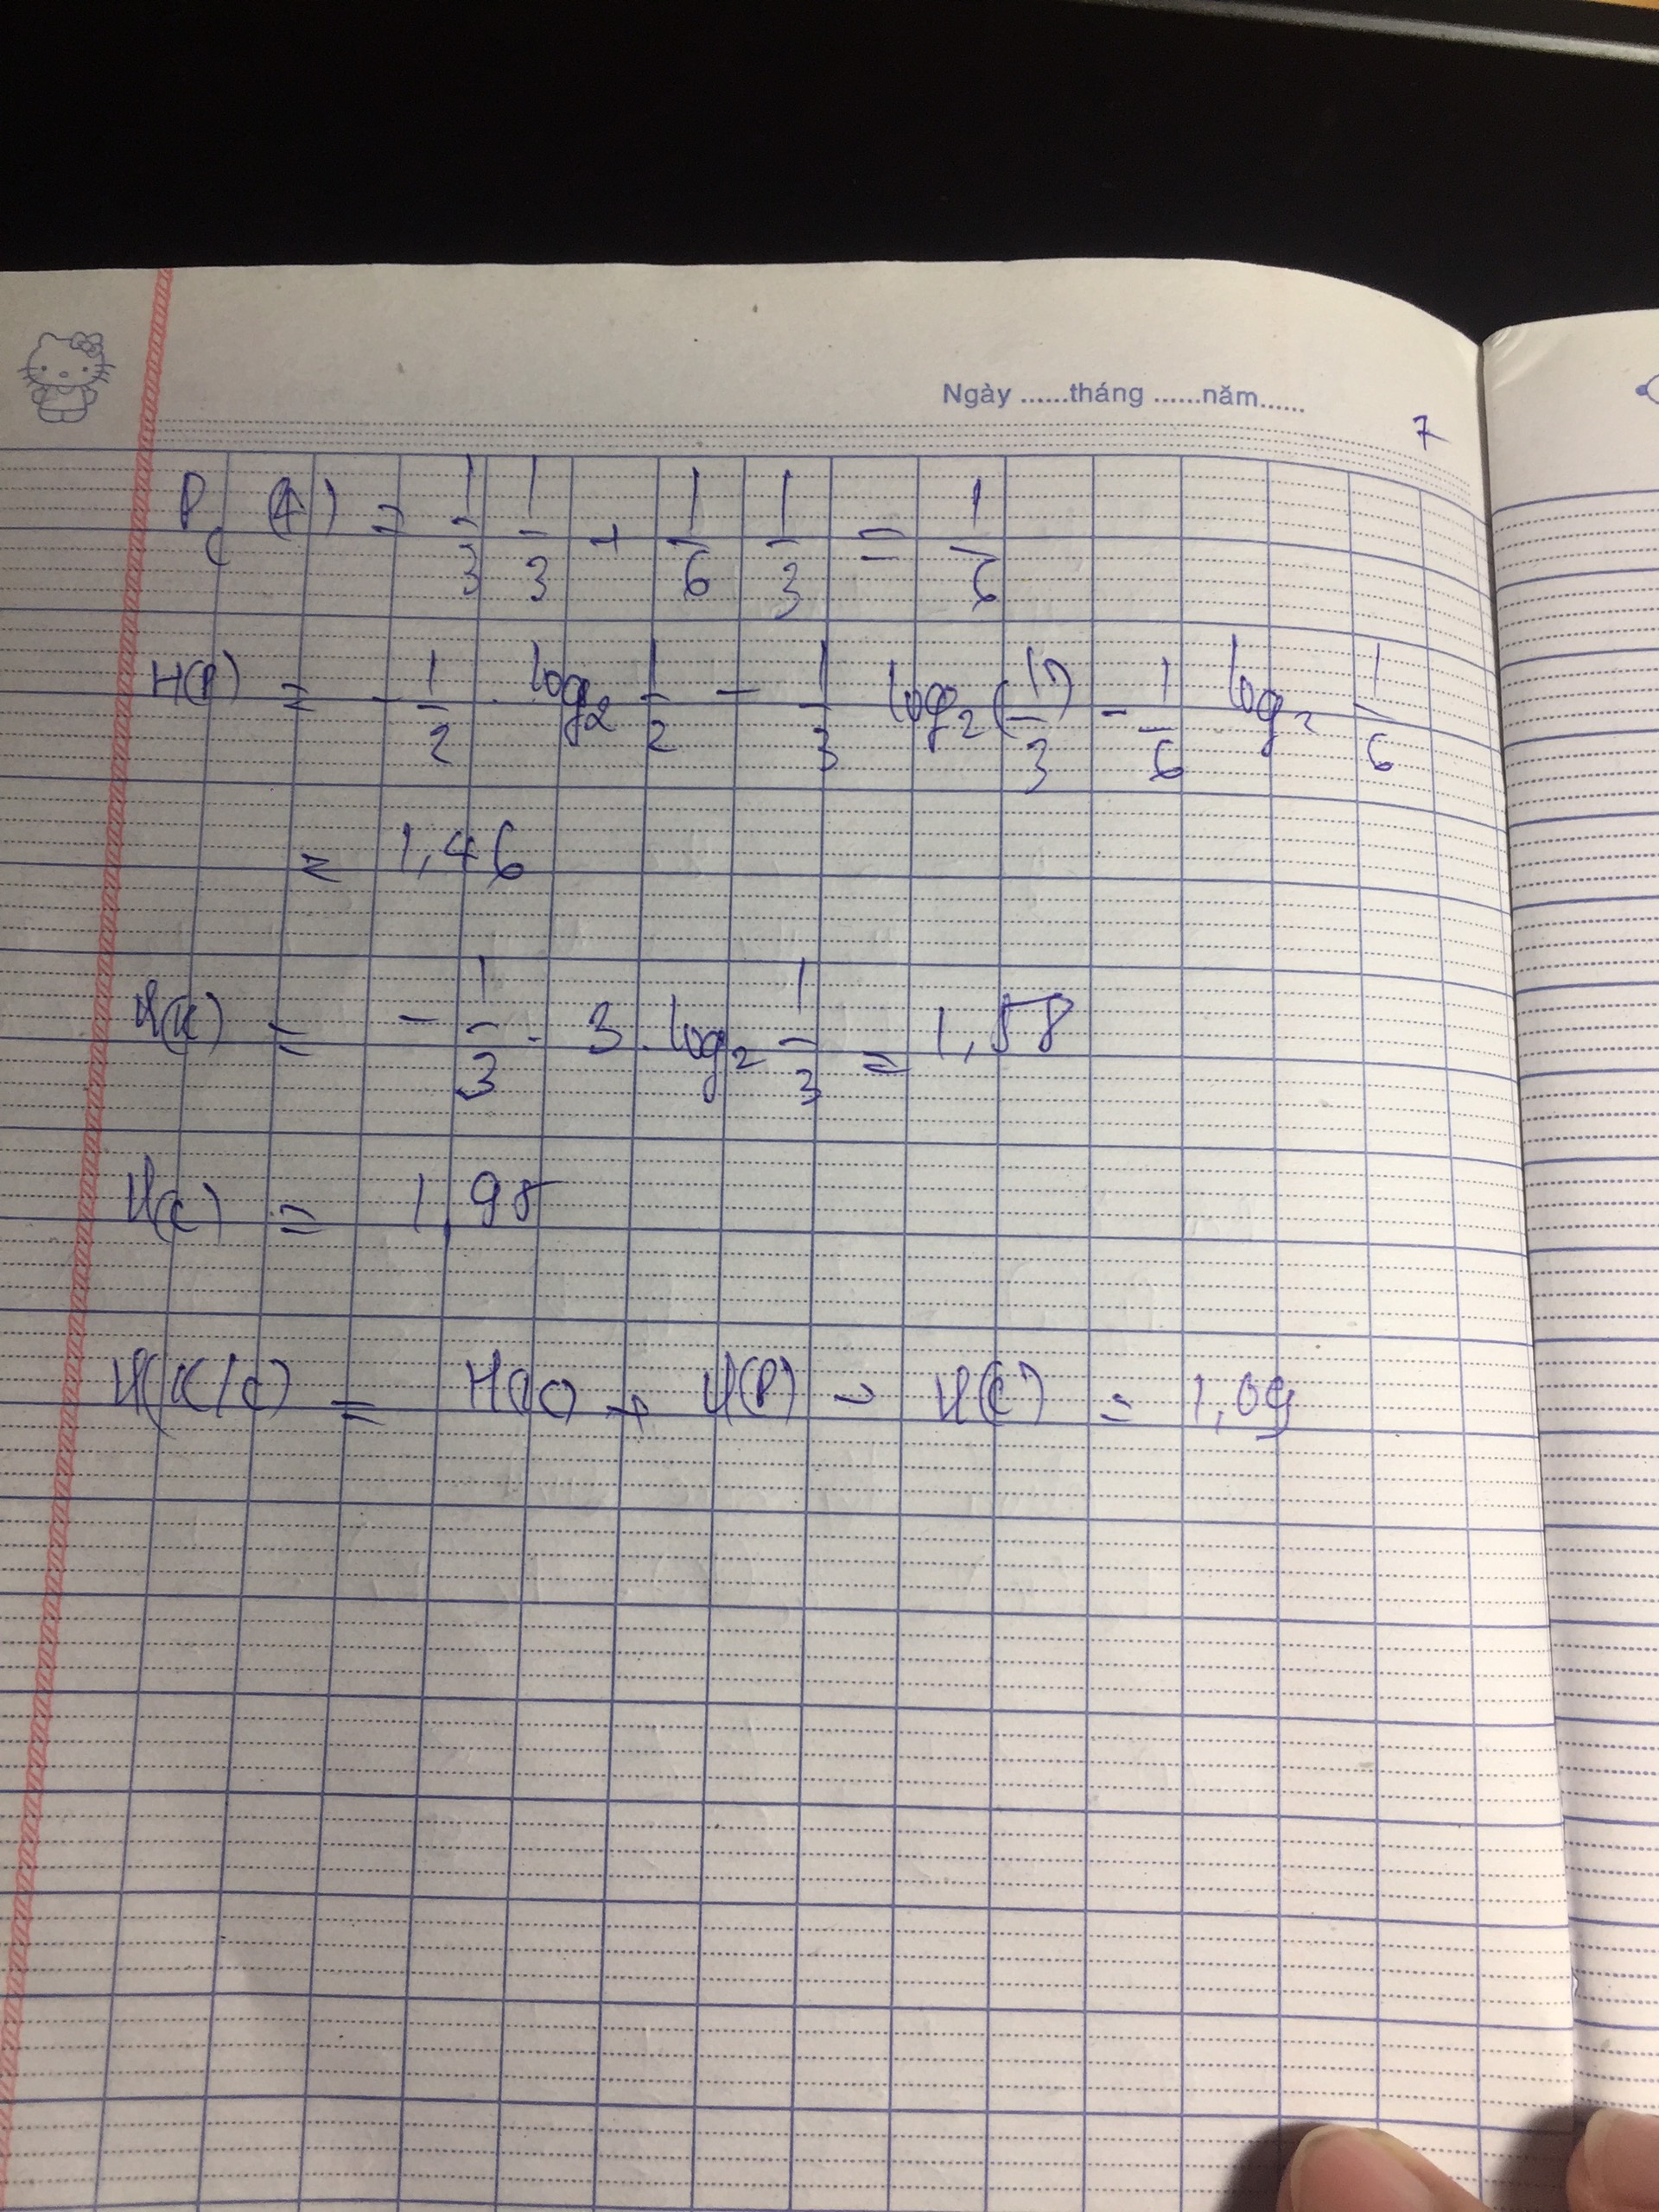 Ngày ......tháng ......năm......
7
P_C (4) = 1/3 1/3 + 1/6 1/3 = 1/6
H(P) = - 1/2 . log₂ 1/2 - 1/3 log₂ (1/3) - 1/6 log₂ 1/6
= 1,46
H(K) = - 1/3 . 3 . log₂ 1/3 = 1,58
H(C) = 1,95
H(K/C) = H(K) + H(P) - H(C) = 1,09